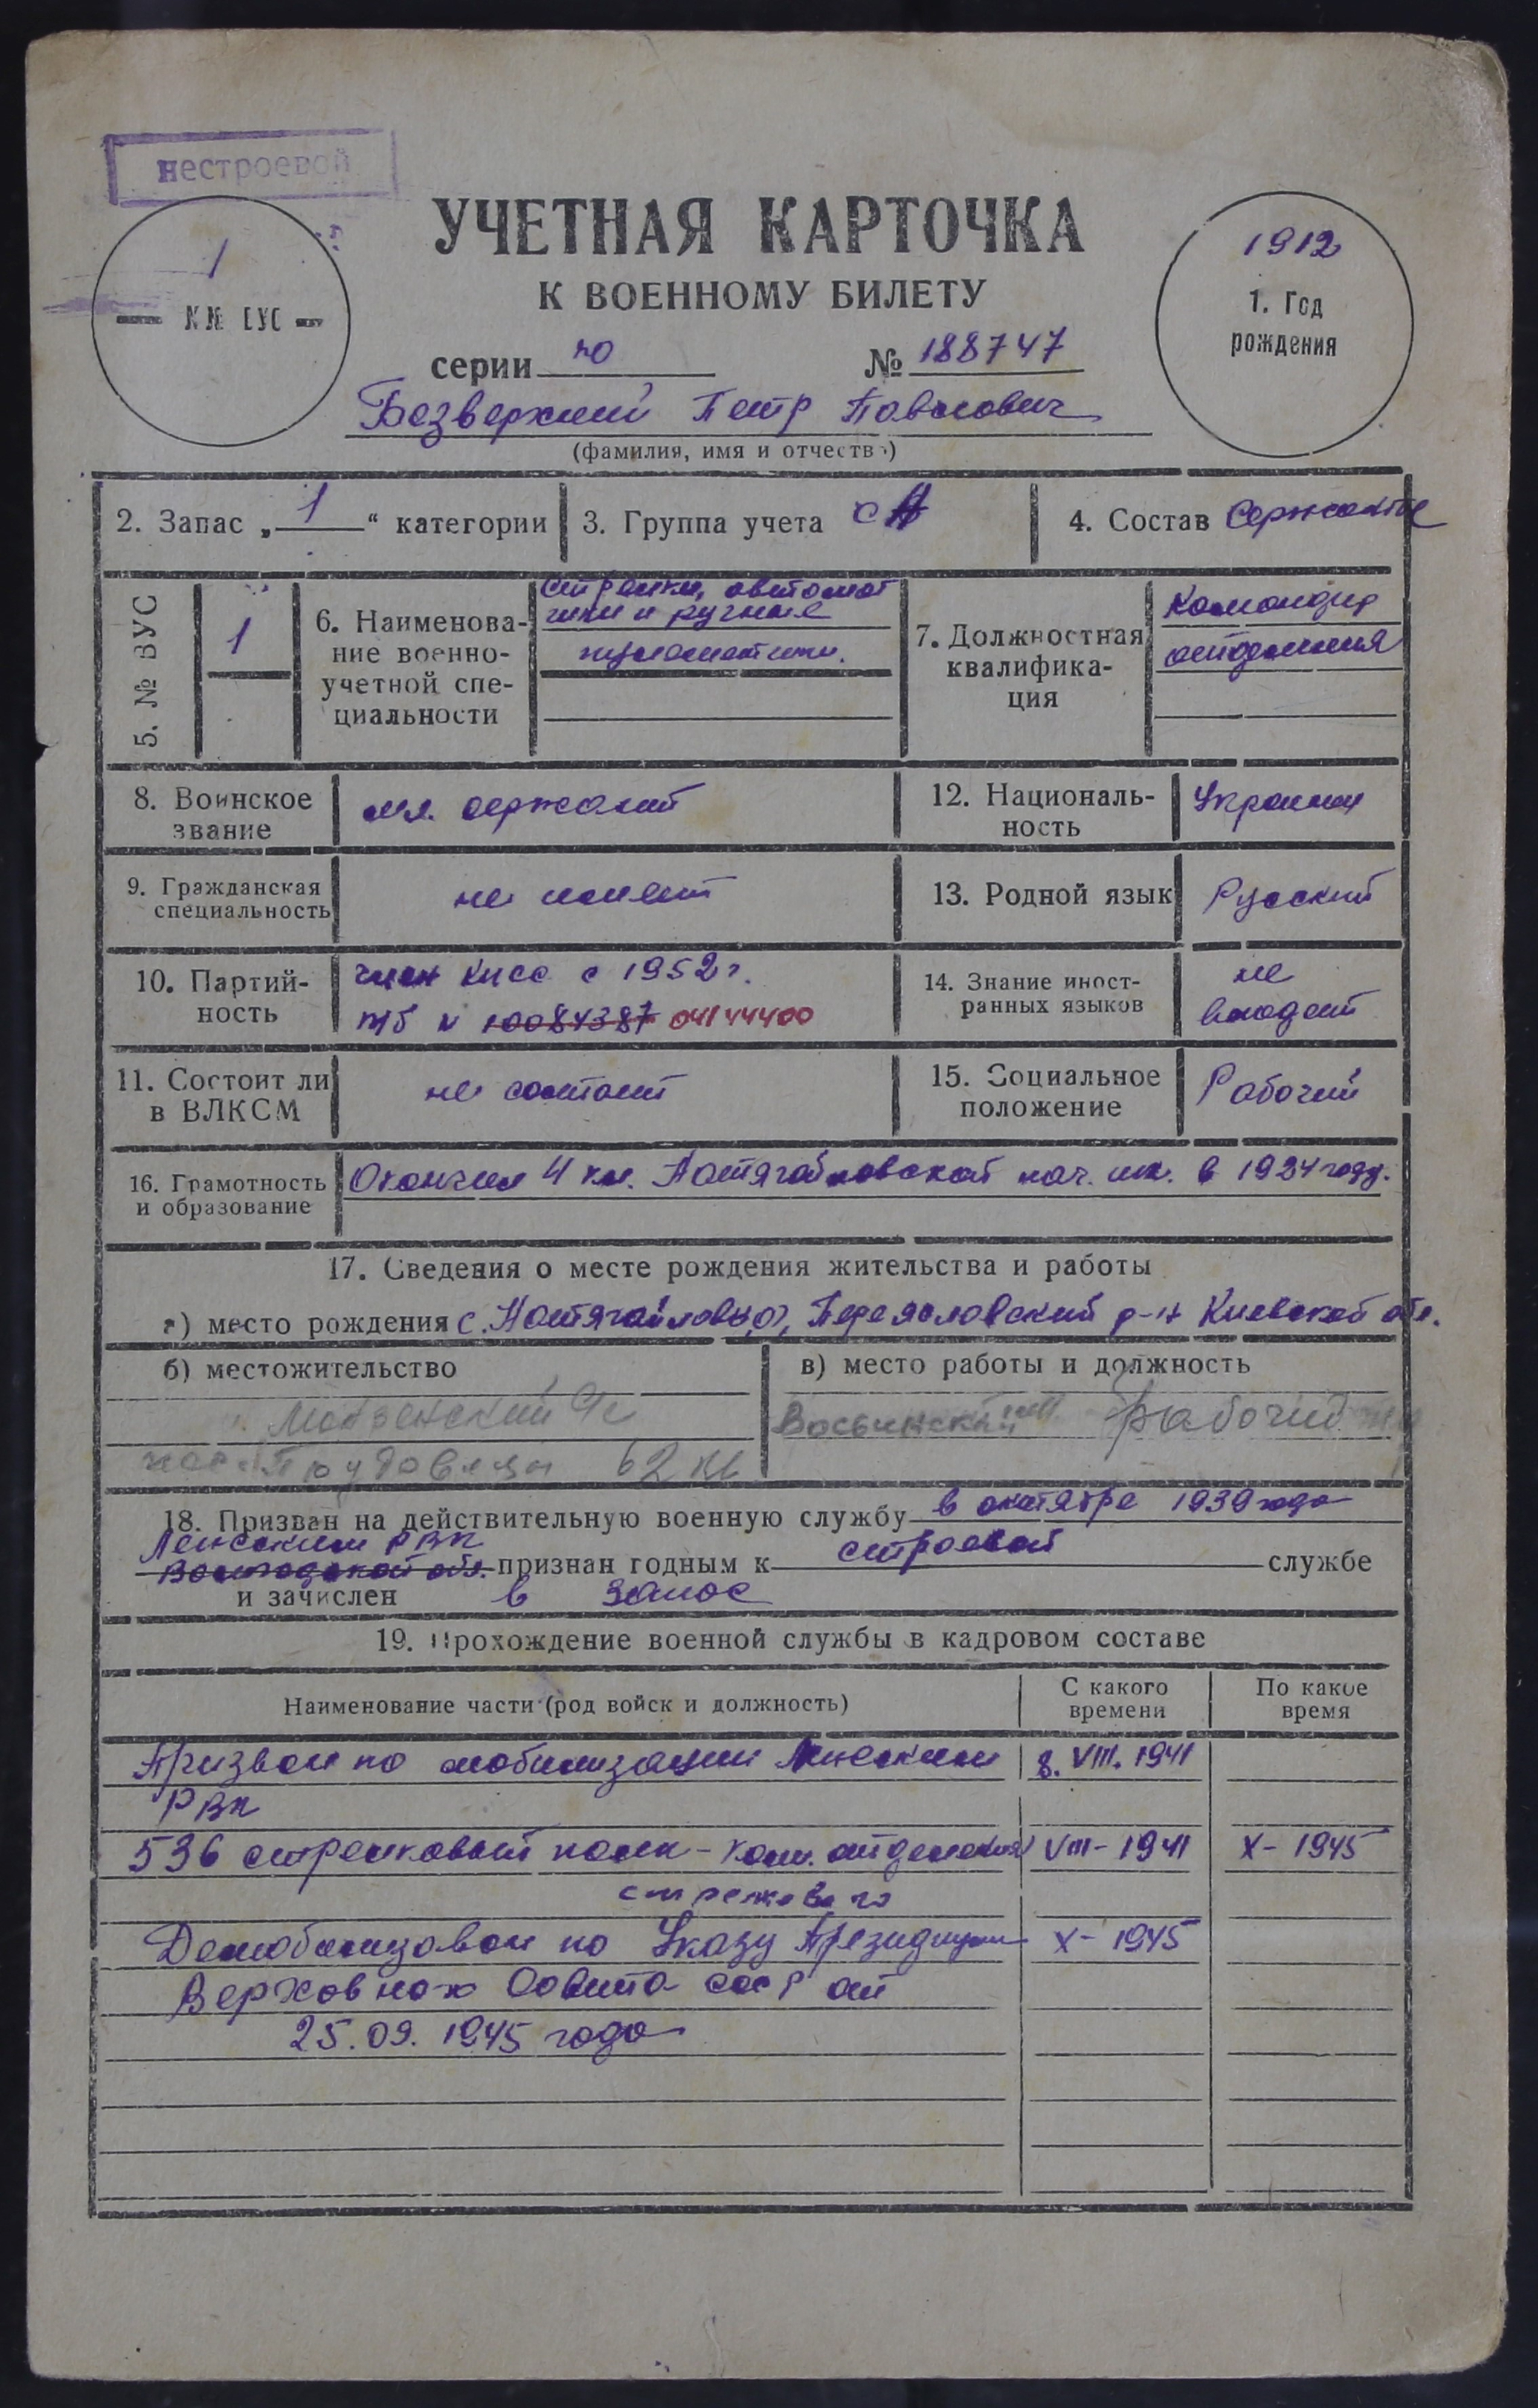 нестроевой
УЧЕТНАЯ КАРТОЧКА
К ВОЕННОМУ БИЛЕТУ
1
№№ ВУС
1912
1. Год
рождения
серии НО № 188747
Безверхний Петр Павлович
(фамилия, имя и отчество)
2. Запас „1“ категории
3. Группа учета СА
4. Состав Сержанты
5. № ВУС
1
6. Наименова-
ние военно-
учетной спе-
циальности
стрелки, автомат
чики и ручные
пулеметчики.
7. Должностная
квалифика-
ция
Командир
отделения
8. Воинское
звание
мл. сержант
12. Националь-
ность
Украинец
9. Гражданская
специальность
не имеет
13. Родной язык
Русский
10. Партий-
ность
член КПСС с 1952 г.
п/б № 10084387 04144400
14. Знание иност-
ранных языков
не
владеет
11. Состоит ли
в ВЛКСМ
не состоит
15. Социальное
положение
Рабочий
16. Грамотность
и образование
Окончил 4 кл. нач. шк. в 1924 году.
17. Сведения о месте рождения жительства и работы
а) место рождения с. Переясловский р-н Киевской обл.
б) местожительство
62 кв
в) место работы и должность
рабочий
18. Призван на действительную военную службу в октябре 1939 года
Ленским РВК
Вологодской обл. признан годным к строевой службе
и зачислен в запас
19. Прохождение военной службы в кадровом составе
Наименование части (род войск и должность)
С какого
времени
По какое
время
Призван по мобилизации Ленским 8. VIII. 1941
РВК
536 стрелковый полк - ком. отделения VIII - 1941 X - 1945
стрелкового
Демобилизован по Указу Президиума X - 1945
Верховного Совета СССР от
25.09.1945 года